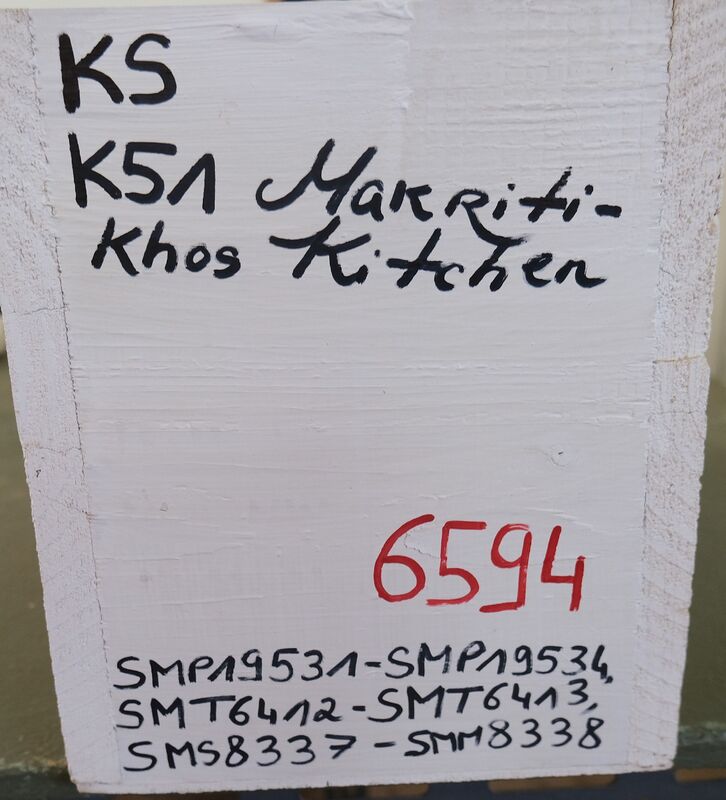 KS
K51 Makriti-
Khos Kitchen
6594
SMP19531-SMP19534,
SMT6412-SMT6413,
SMS8337-SMM8338